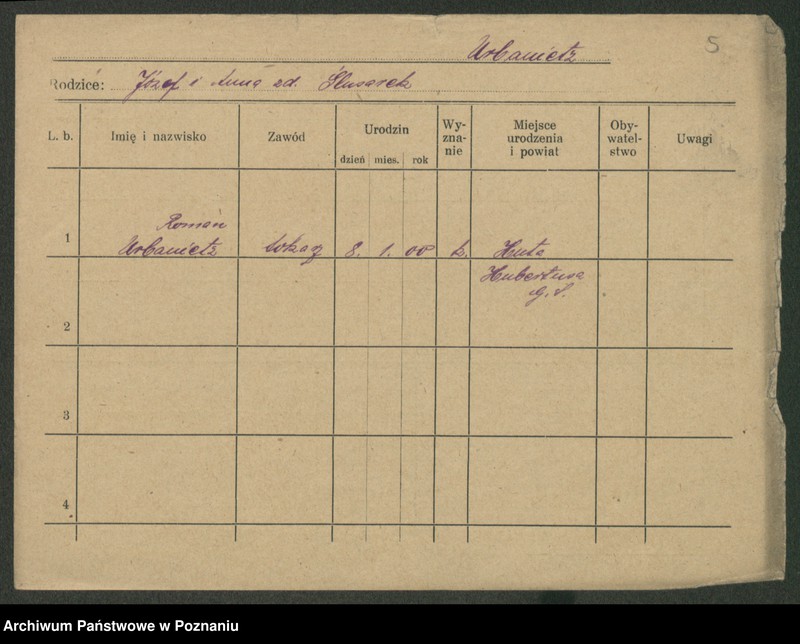 Urbanietz
5
Rodzice: Józef i Anna zd. Ślusarek
L. b. Imię i nazwisko Zawód Urodzin dzień mies. rok Wy-zna-nie Miejsce urodzenia i powiat Oby-watel-stwo Uwagi
Roman
1 Urbanietz tokarz 8. 1. 00 k. Huta
Hubertusa
G. S.
2
3
4
Archiwum Państwowe w Poznaniu